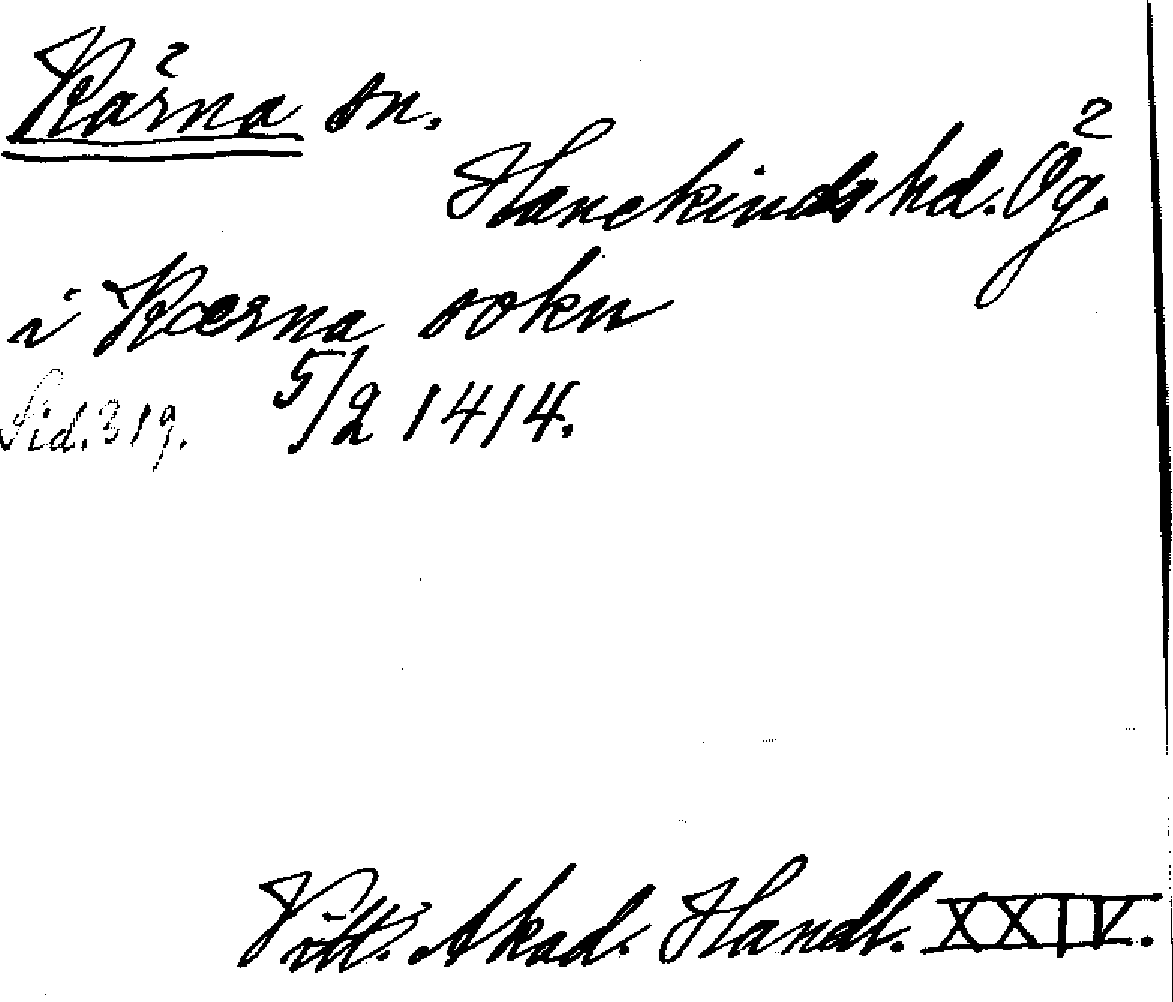 Kärna sn.
Hanekinds hd. Ög.
i Kærna sokn
Sid. 319. 5/2 1414.
Vitt. Akad. Handl. XXIV.